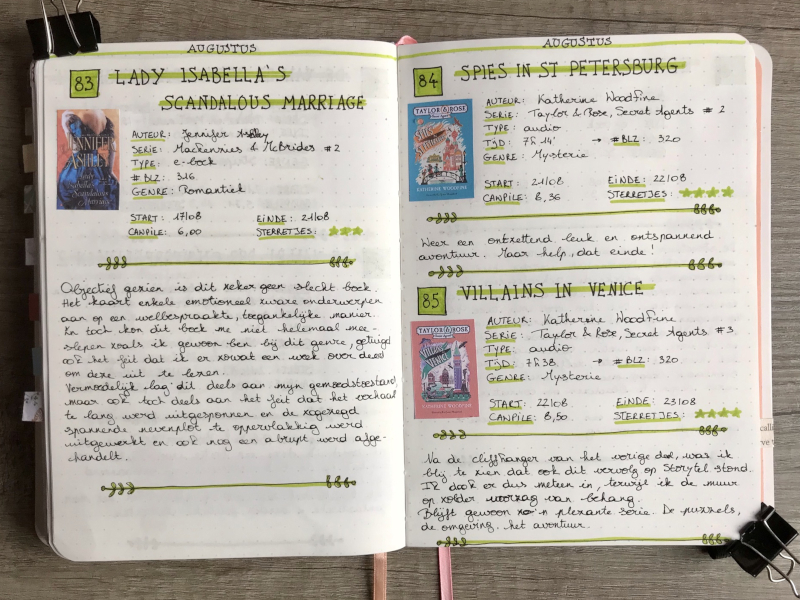 AUGUSTUS
83 LADY ISABELLA'S
SCANDALOUS MARRIAGE
JENNIFER
ASHLEY
Lady
Isabella's
Scandalous
Marriage
AUTEUR: Jennifer Ashley
SERIE: MacKenzies & McBrides #2
TYPE: e-book
# BLZ: 316
GENRE: Romantiek
START: 17/08 EINDE: 21/08
CANPILE: 6,00 STERRETJES:
Objectief gezien is dit zeker geen slecht boek.
Het kaart enkele emotioneel zware onderwerpen
aan op een welbespraakte, toegankelijke manier.
En toch kon dit boek me niet helemaal mee-
slepen zoals ik gewoon ben bij dit genre, getuigd
ook het feit dat ik er zowat een week over deed
om deze uit te lezen.
Vermoedelijk lag dit deels aan mijn gemoedstoestand,
maar ook toch deels aan het feit dat het verhaal
te lang werd uitgesponnen en de zogezegd
spannende nevenplot te oppervlakkig werd
uitgewerkt en ook nog a abrupt werd afge-
handelt.
AUGUSTUS
84 SPIES IN ST PETERSBURG
TAYLOR & ROSE
SPIES IN
ST. PETERSBURG
KATHERINE WOODFINE
AUTEUR: Katherine Woodfine
SERIE: Taylor & Rose, Secret Agents # 2
TYPE: audio
TIJD: 7h 14' → # BLZ: 320
GENRE: Mysterie
START: 21/08 EINDE: 22/08
CANPILE: 8,36 STERRETJES:
Weer een ontzettend leuk en ontspannend
avontuur. Maar help, dat einde!
85 VILLAINS IN VENICE
TAYLOR & ROSE
VILLAINS IN
VENICE
KATHERINE WOODFINE
AUTEUR: Katherine Woodfine
SERIE: Taylor & Rose, Secret Agents #3
TYPE: audio
TIJD: 7h38 → # BLZ: 320
GENRE: Mysterie
START: 22/08 EINDE: 23/08
CANPILE: 8,50 STERRETJES:
Na de cliffhanger van het vorige deel, was ik
blij te zien dat ook dit vervolg op Storytel stond.
Ik dook er dus meteen in, terwijl ik de muur
op zolder voorzag van behang.
Blijft gewoon zo'n plezante serie. De puzzels,
de omgeving, het avontuur.